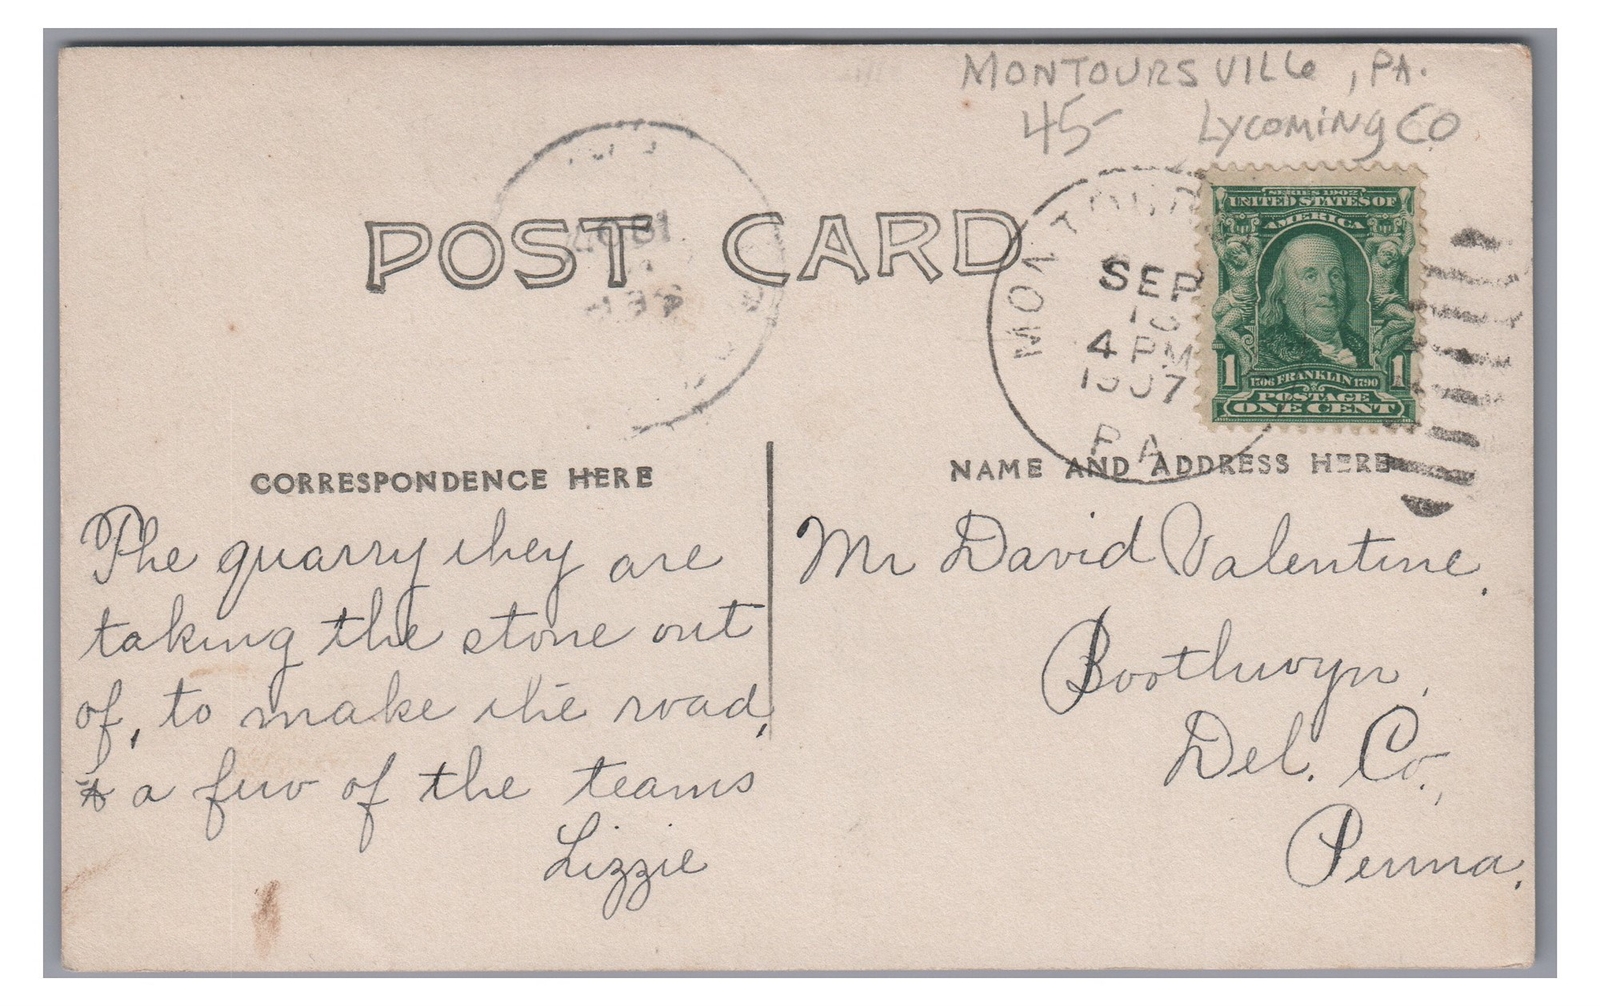 MONTOURSVILLE, PA.
45- LYCOMING CO
POST CARD
SEP
4 PM
1907
PA
SERIES 1902
UNITED STATES OF
AMERICA
1 1706 FRANKLIN 1790 1
POSTAGE
ONE CENT
CORRESPONDENCE HERE
The quarry they are
taking the stone out
of, to make the road,
& a few of the teams
Lizzie
NAME AND ADDRESS HERE
Mr David Valentine.
Boothwyn,
Del. Co.,
Penna.